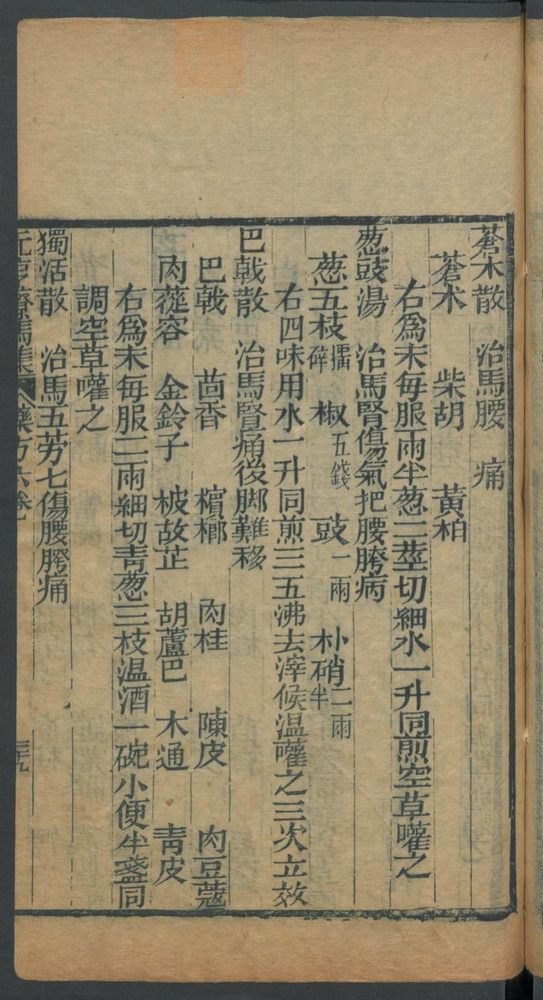 蒼术散　治馬腰　痛
蒼术　柴胡　黃柏
右爲末每服兩半葱二莖切細水一升同煎空草嚾之
葱豉湯　治馬腎傷氣把腰胯病
葱五枝擂碎　椒五錢　豉一兩　朴硝二兩半
右四味用水一升同煎三五沸去滓候温嚾之三次立效
巴戟散　治馬腎痛後脚難移
巴戟　茴香　檳榔　肉桂　陳皮　肉豆蔻
肉蓯容　金鈴子　破故芷　胡蘆巴　木通　靑皮
右爲末每服二兩細切靑葱三枝温酒一碗小便半盞同
調空草嚾之
獨活散　治馬五劳七傷腰胯痛
元亨療馬集　藥方六卷　三九